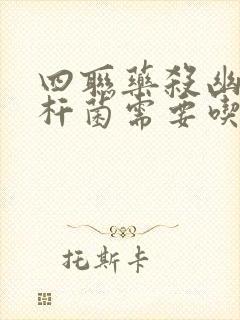 四联药杀幽
杆菌需要喫
托斯卡